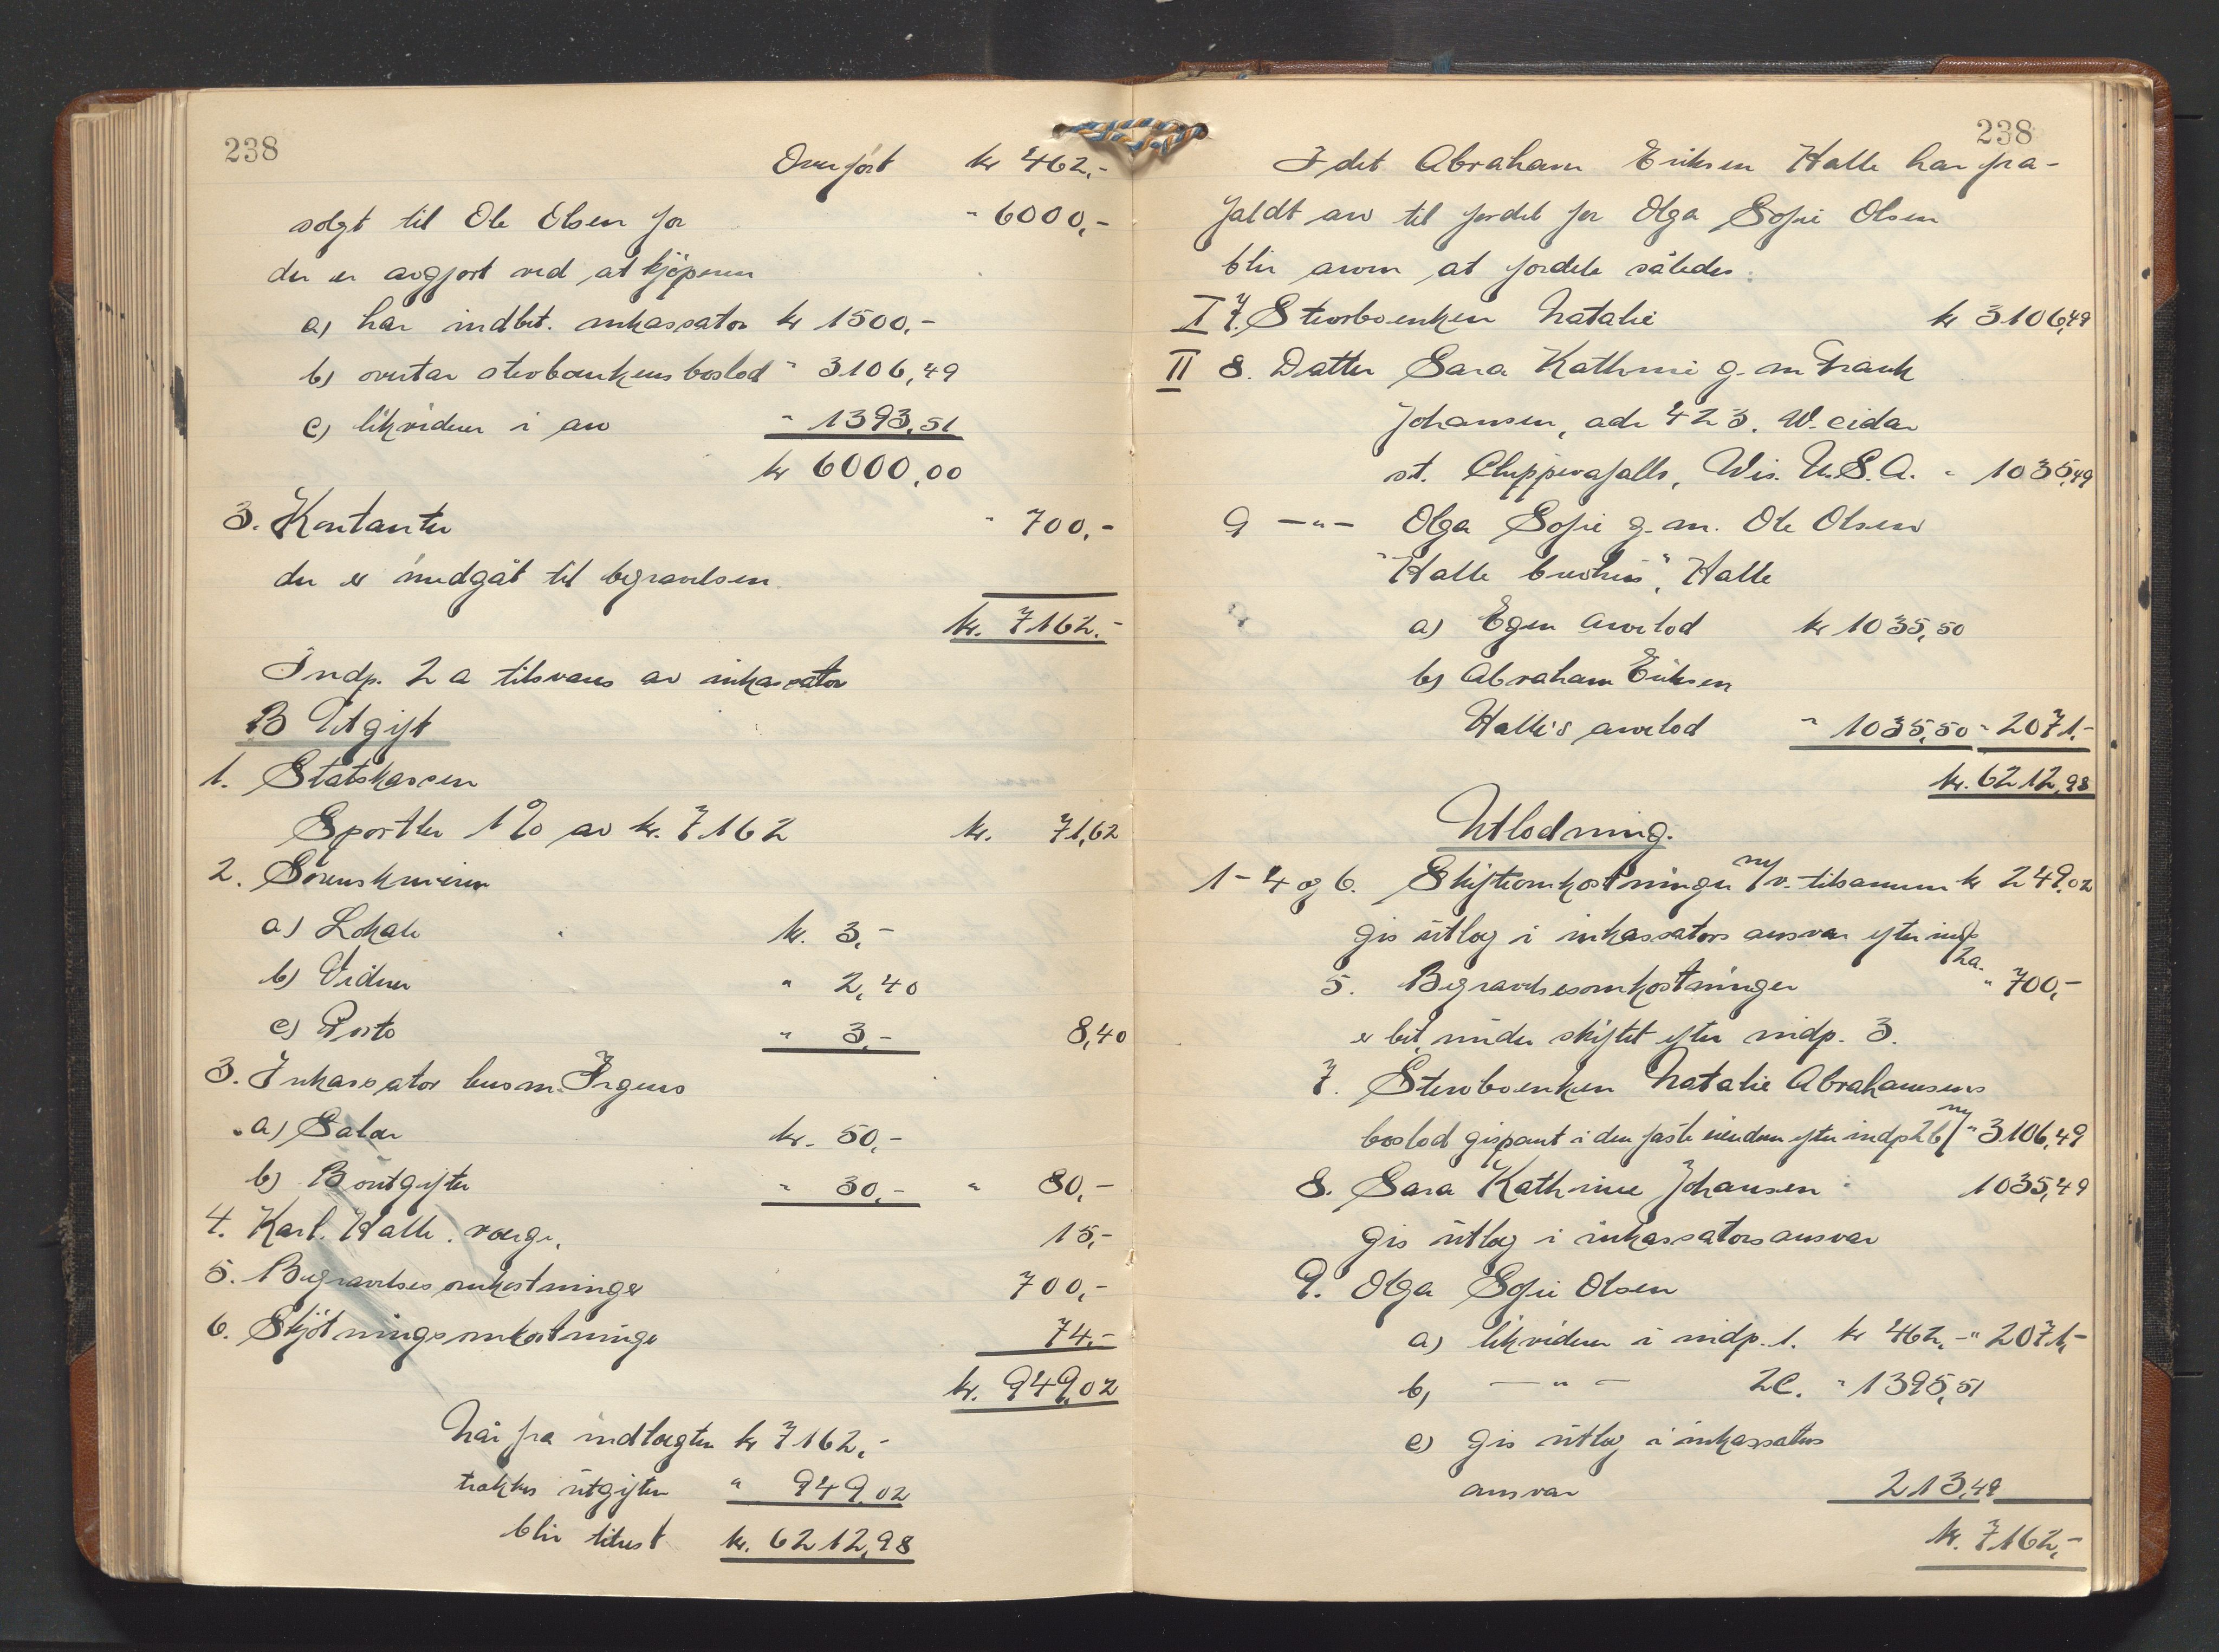 238
Overført kr 462,-
solgt til Ole Olsen for " 6000,-
der er avgjort ved at kjøperen
a) har indbet. inkassator kr 1500,-
b) overtar stervboenkens boslod " 3106,49
c) likviderer i arv " 1393,51
kr 6000,00
3. Kontanter " 700,-
der er medgåt til begravelsen.
kr. 7162.-
Indp. 2 a tilsvares av inkassator
B Utgift
1. Statskassen
Sportler 1% av kr. 7162 kr. 71,62
2. Sorenskriveren
a) Lokale kr. 3,-
b) Vidner " 2,40
c) Porto " 3.- 8,40
3. Inkassator lensm. Irgens
a) Salær kr. 50,-
b) Boutgifter " 30,- " 80,-
4. Karl Halle. værge. 15,-
5. Begravelsesomkostninger 700,-
6. Skjøtningsomkostninger 74.-
kr. 949,02
Når fra indtægten kr 7162,-
trækkes utgiften " 949,02
blir tilrest kr. 6212,98
238
Idet Abraham Eriksen Halle har fra-
faldt arv til fordel for Olga Sofie Olsen
blir arven at fordele således:
I 7. Stervboenken Natalie kr 3106,49
II 8. Datter Sara Kathrine g. m Frank
Johansen, adr 423. W. cidar
st. Chippevafalls, Wis. U.S.A. " 1035,49
9 -"- Olga Sofie g. m. Ole Olsen
"Halle bruhus", Halle
a) Egen arvelod kr 1035,50
b) Abraham Eriksen
Halle's arvelod " 1035,50 " 2071.-
kr. 6212,98
Utlodning.
1-4 og 6. Skifteomkostninger m/v. tilsammen kr 249.02
gis utlæg i inkassators ansvar efter indp
2a.
5. Begravelsesomkostninger " 700,-
er bet. under skiftet efter indp. 3.
7. Stervboenken Natalie Abrahamsens
boslod gis pant i den faste eiendom efter indp 2b " 3106,49
8. Sara Kathrine Johansen 1035,49
gis utlæg i inkassators ansvar
9. Olga Sofie Olsen
a) likviderer i indp. 1. kr 462,- " 2071,-
b) -"- 2c. " 1395,51
c) gis utlæg i inkassators
ansvar 213,49
kr. 7162,-